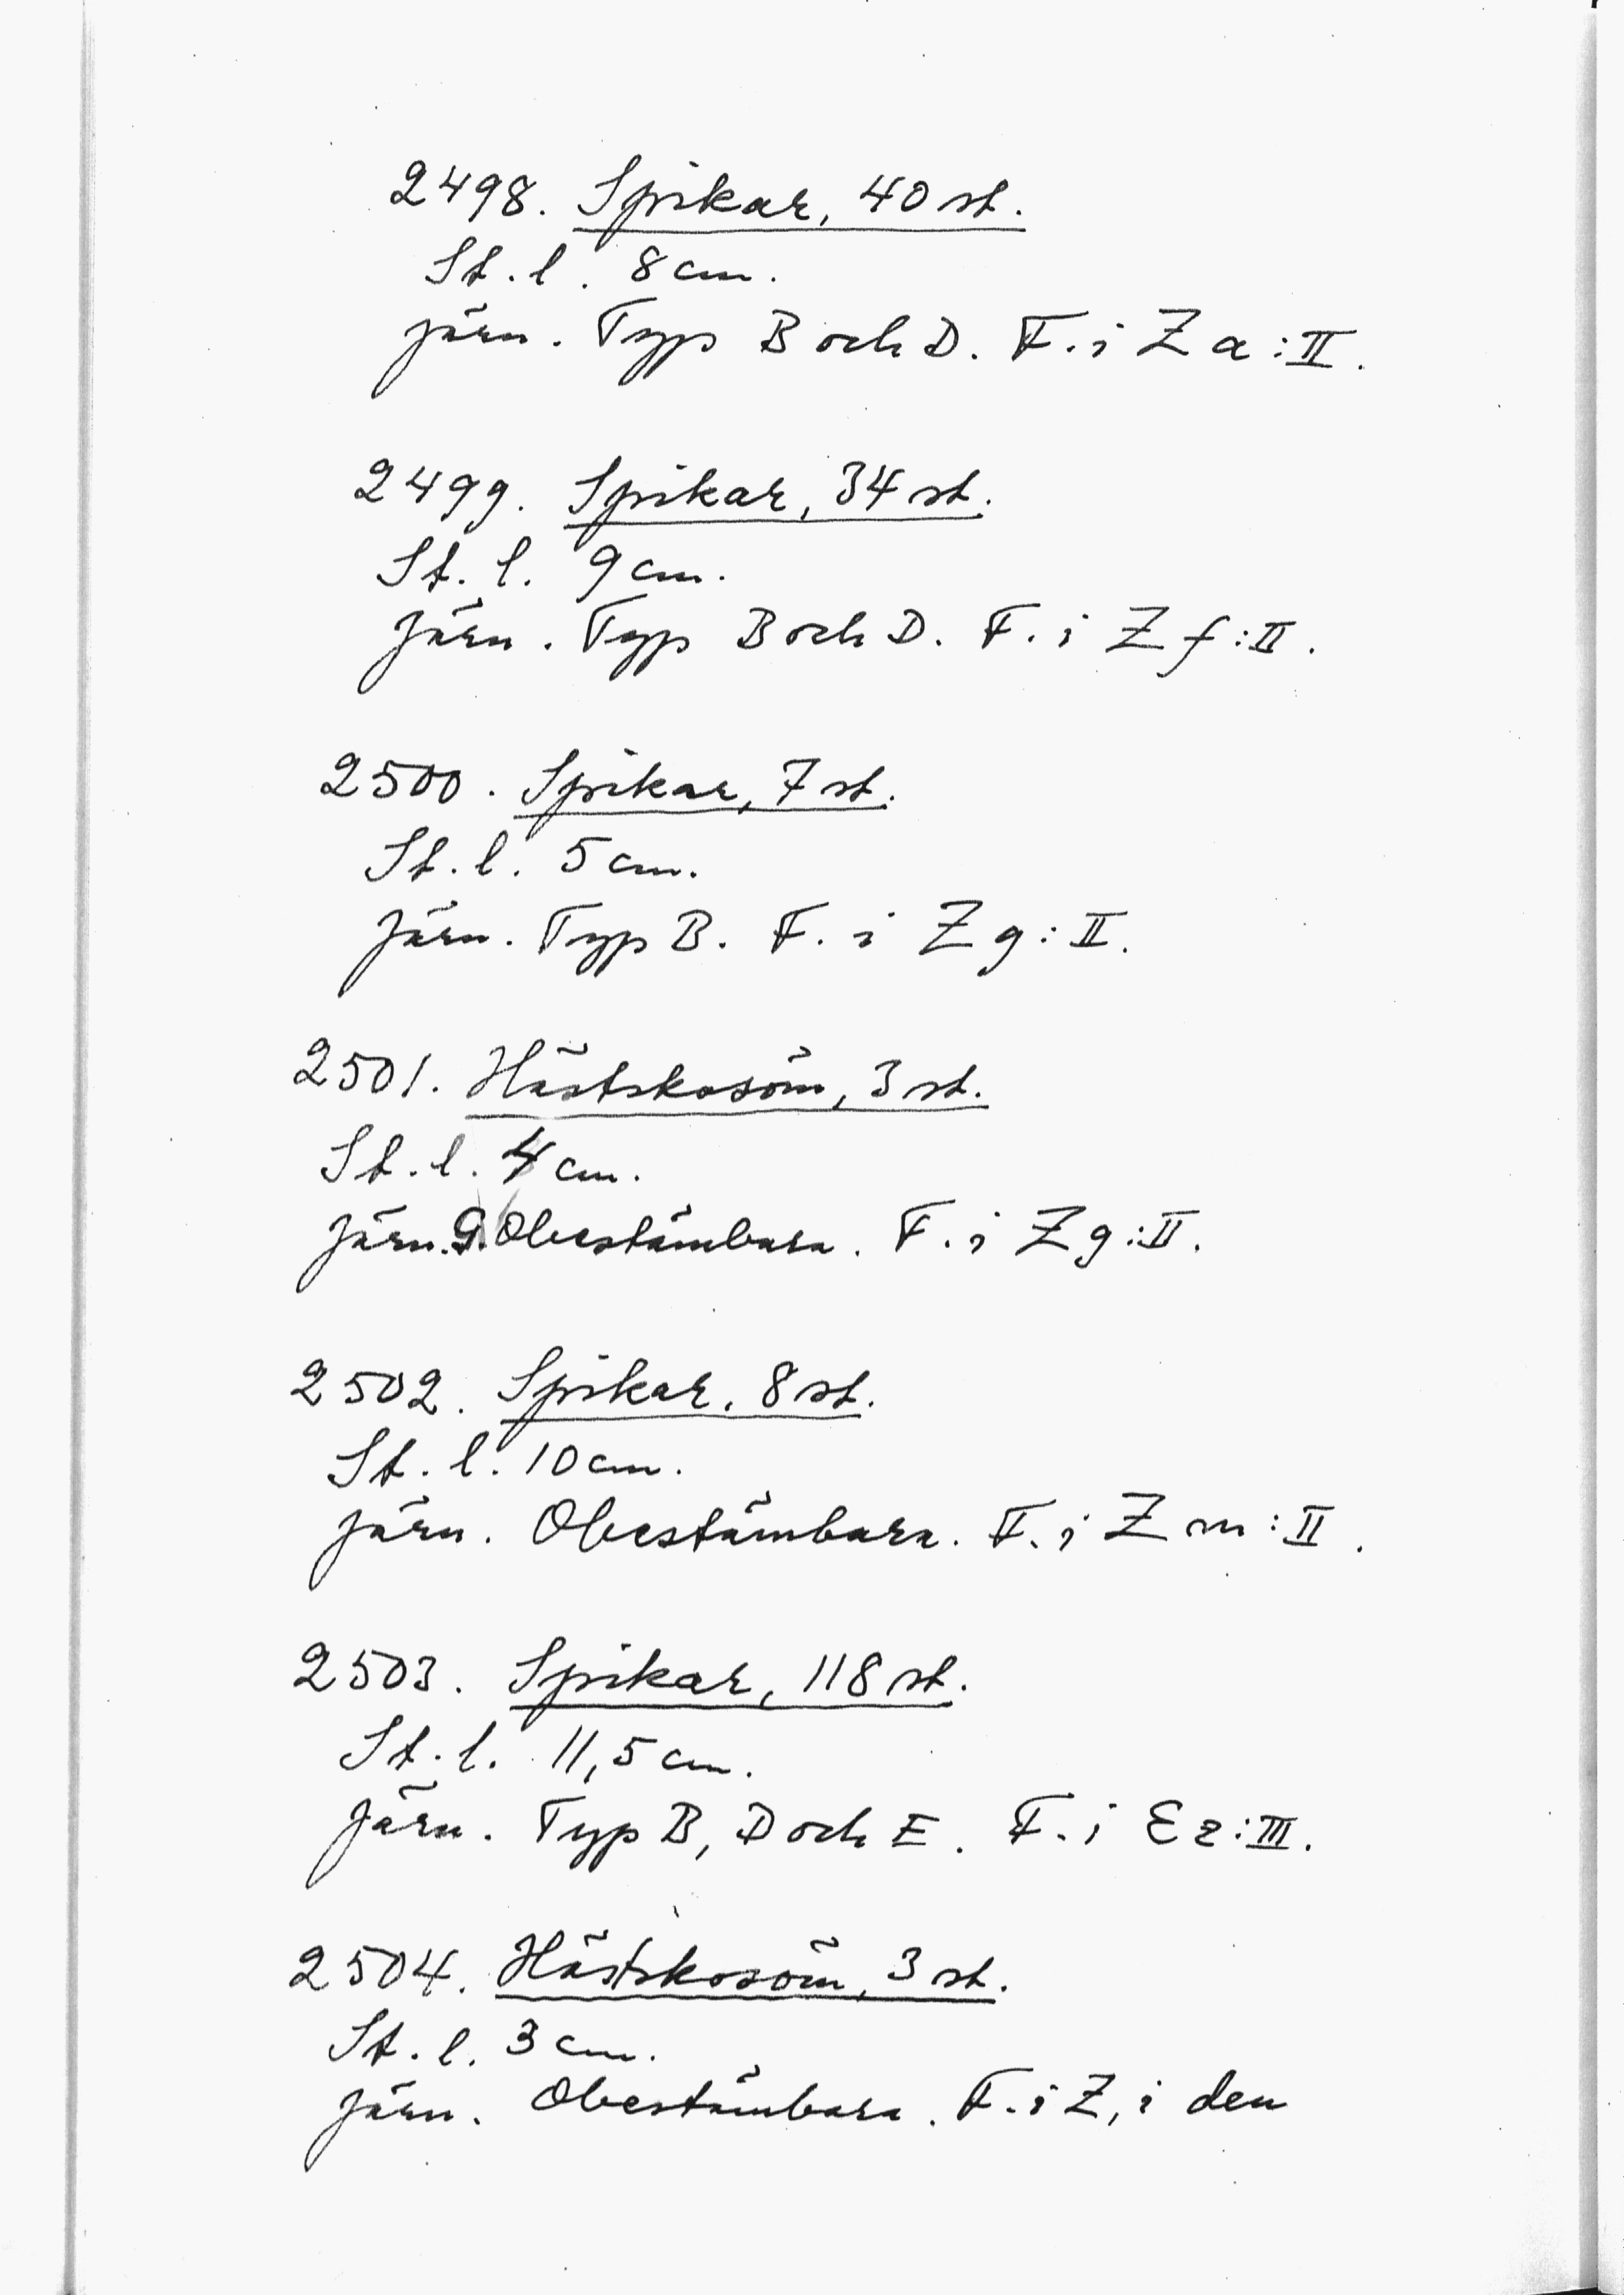 2498. Spikar, 40 st.
St. l. 8 cm.
Järn. Typ B och D. F. i Z a : II.
2499. Spikar, 34 st.
St. l. 9 cm.
Järn. Typ B och D. F. i Z f : II.
2500. Spikar, 7 st.
St. l. 5 cm.
Järn. Typ B. F. i Z g : II.
2501. Hästskosöm, 3 st.
St. l. 4 cm.
Järn. Obestämbara. F. i Z g : II.
2502. Spikar, 8 st.
St. l. 10 cm.
Järn. Obestämbara. F. i Z m : II.
2503. Spikar, 118 st.
St. l. 11,5 cm.
Järn. Typ B, D och E. F. i : III.
2504. Hästskosöm, 3 st.
St. l. 3 cm.
Järn. Obestämbara. F. i Z, i den